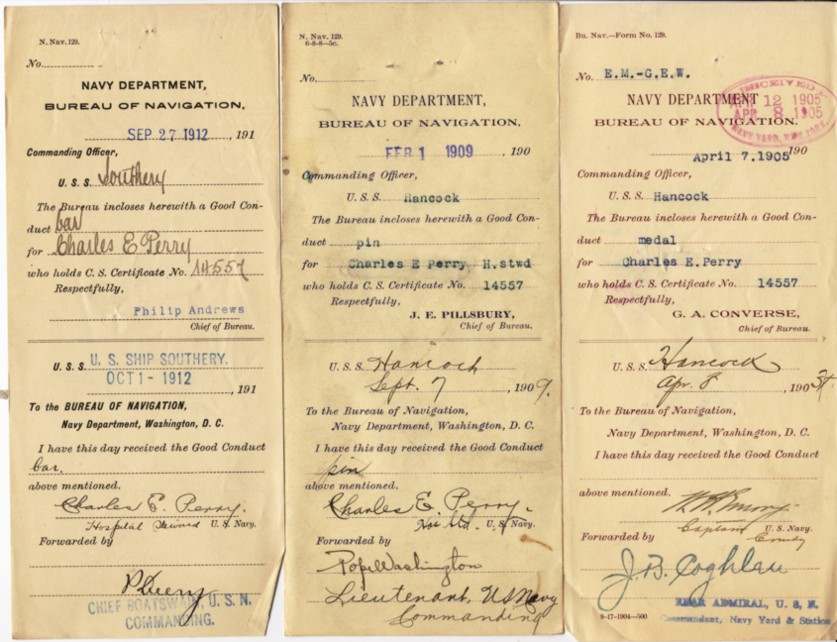 N. Nav. 129.
No.
NAVY DEPARTMENT,
BUREAU OF NAVIGATION,
SEP 27 1912, 191
Commanding Officer,
U. S. S. Southery
The Bureau incloses herewith a Good Con-
duct bar
for Charles E Perry
who holds C. S. Certificate No. 14557
Respectfully,
Philip Andrews
Chief of Bureau.
U. S. S. U. S. SHIP SOUTHERY.
OCT 1 - 1912, 191
To the BUREAU OF NAVIGATION,
Navy Department, Washington, D. C.
I have this day received the Good Conduct
bar,
above mentioned.
Charles E. Perry.
Hospital Steward U. S. Navy.
Forwarded by
CHIEF BOATSWAIN, U. S. N.
COMMANDING.
N. Nav. 129.
6-8-8—5c.
No.
NAVY DEPARTMENT,
BUREAU OF NAVIGATION,
FEB 1 1909, 190
Commanding Officer,
U. S. S. Hancock
The Bureau incloses herewith a Good Con-
duct pin
for Charles E Perry H.stwd
who holds C. S. Certificate No. 14557
Respectfully,
J. E. PILLSBURY,
Chief of Bureau.
U. S. S. Hancock
Sept. 7, 1909.
To the Bureau of Navigation,
Navy Department, Washington, D. C.
I have this day received the Good Conduct
pin
above mentioned.
Charles E. Perry.
U. S. Navy.
Forwarded by
Pope Washington
Lieutenant, US Navy
Commanding
Bu. Nav.—Form No. 129.
No. E.M.-G.E.W.
RECEIVED
12 1905
APR 8 1905
NAVY YARD, NEW YORK
NAVY DEPARTMENT
BUREAU OF NAVIGATION.
April 7.1905 190
Commanding Officer,
U. S. S. Hancock
The Bureau incloses herewith a Good Con-
duct medal
for Charles E.Perry
who holds C. S. Certificate No. 14557
Respectfully,
G. A. CONVERSE,
Chief of Bureau.
U. S. S. Hancock
Apr. 8, 190
To the Bureau of Navigation,
Navy Department, Washington, D. C.
I have this day received the Good Conduct
above mentioned.
Captain U. S. Navy.
Forwarded by
J.B. Coghlan
REAR ADMIRAL, U. S. N.
Commandant, Navy Yard & Station
9-17-1904—500